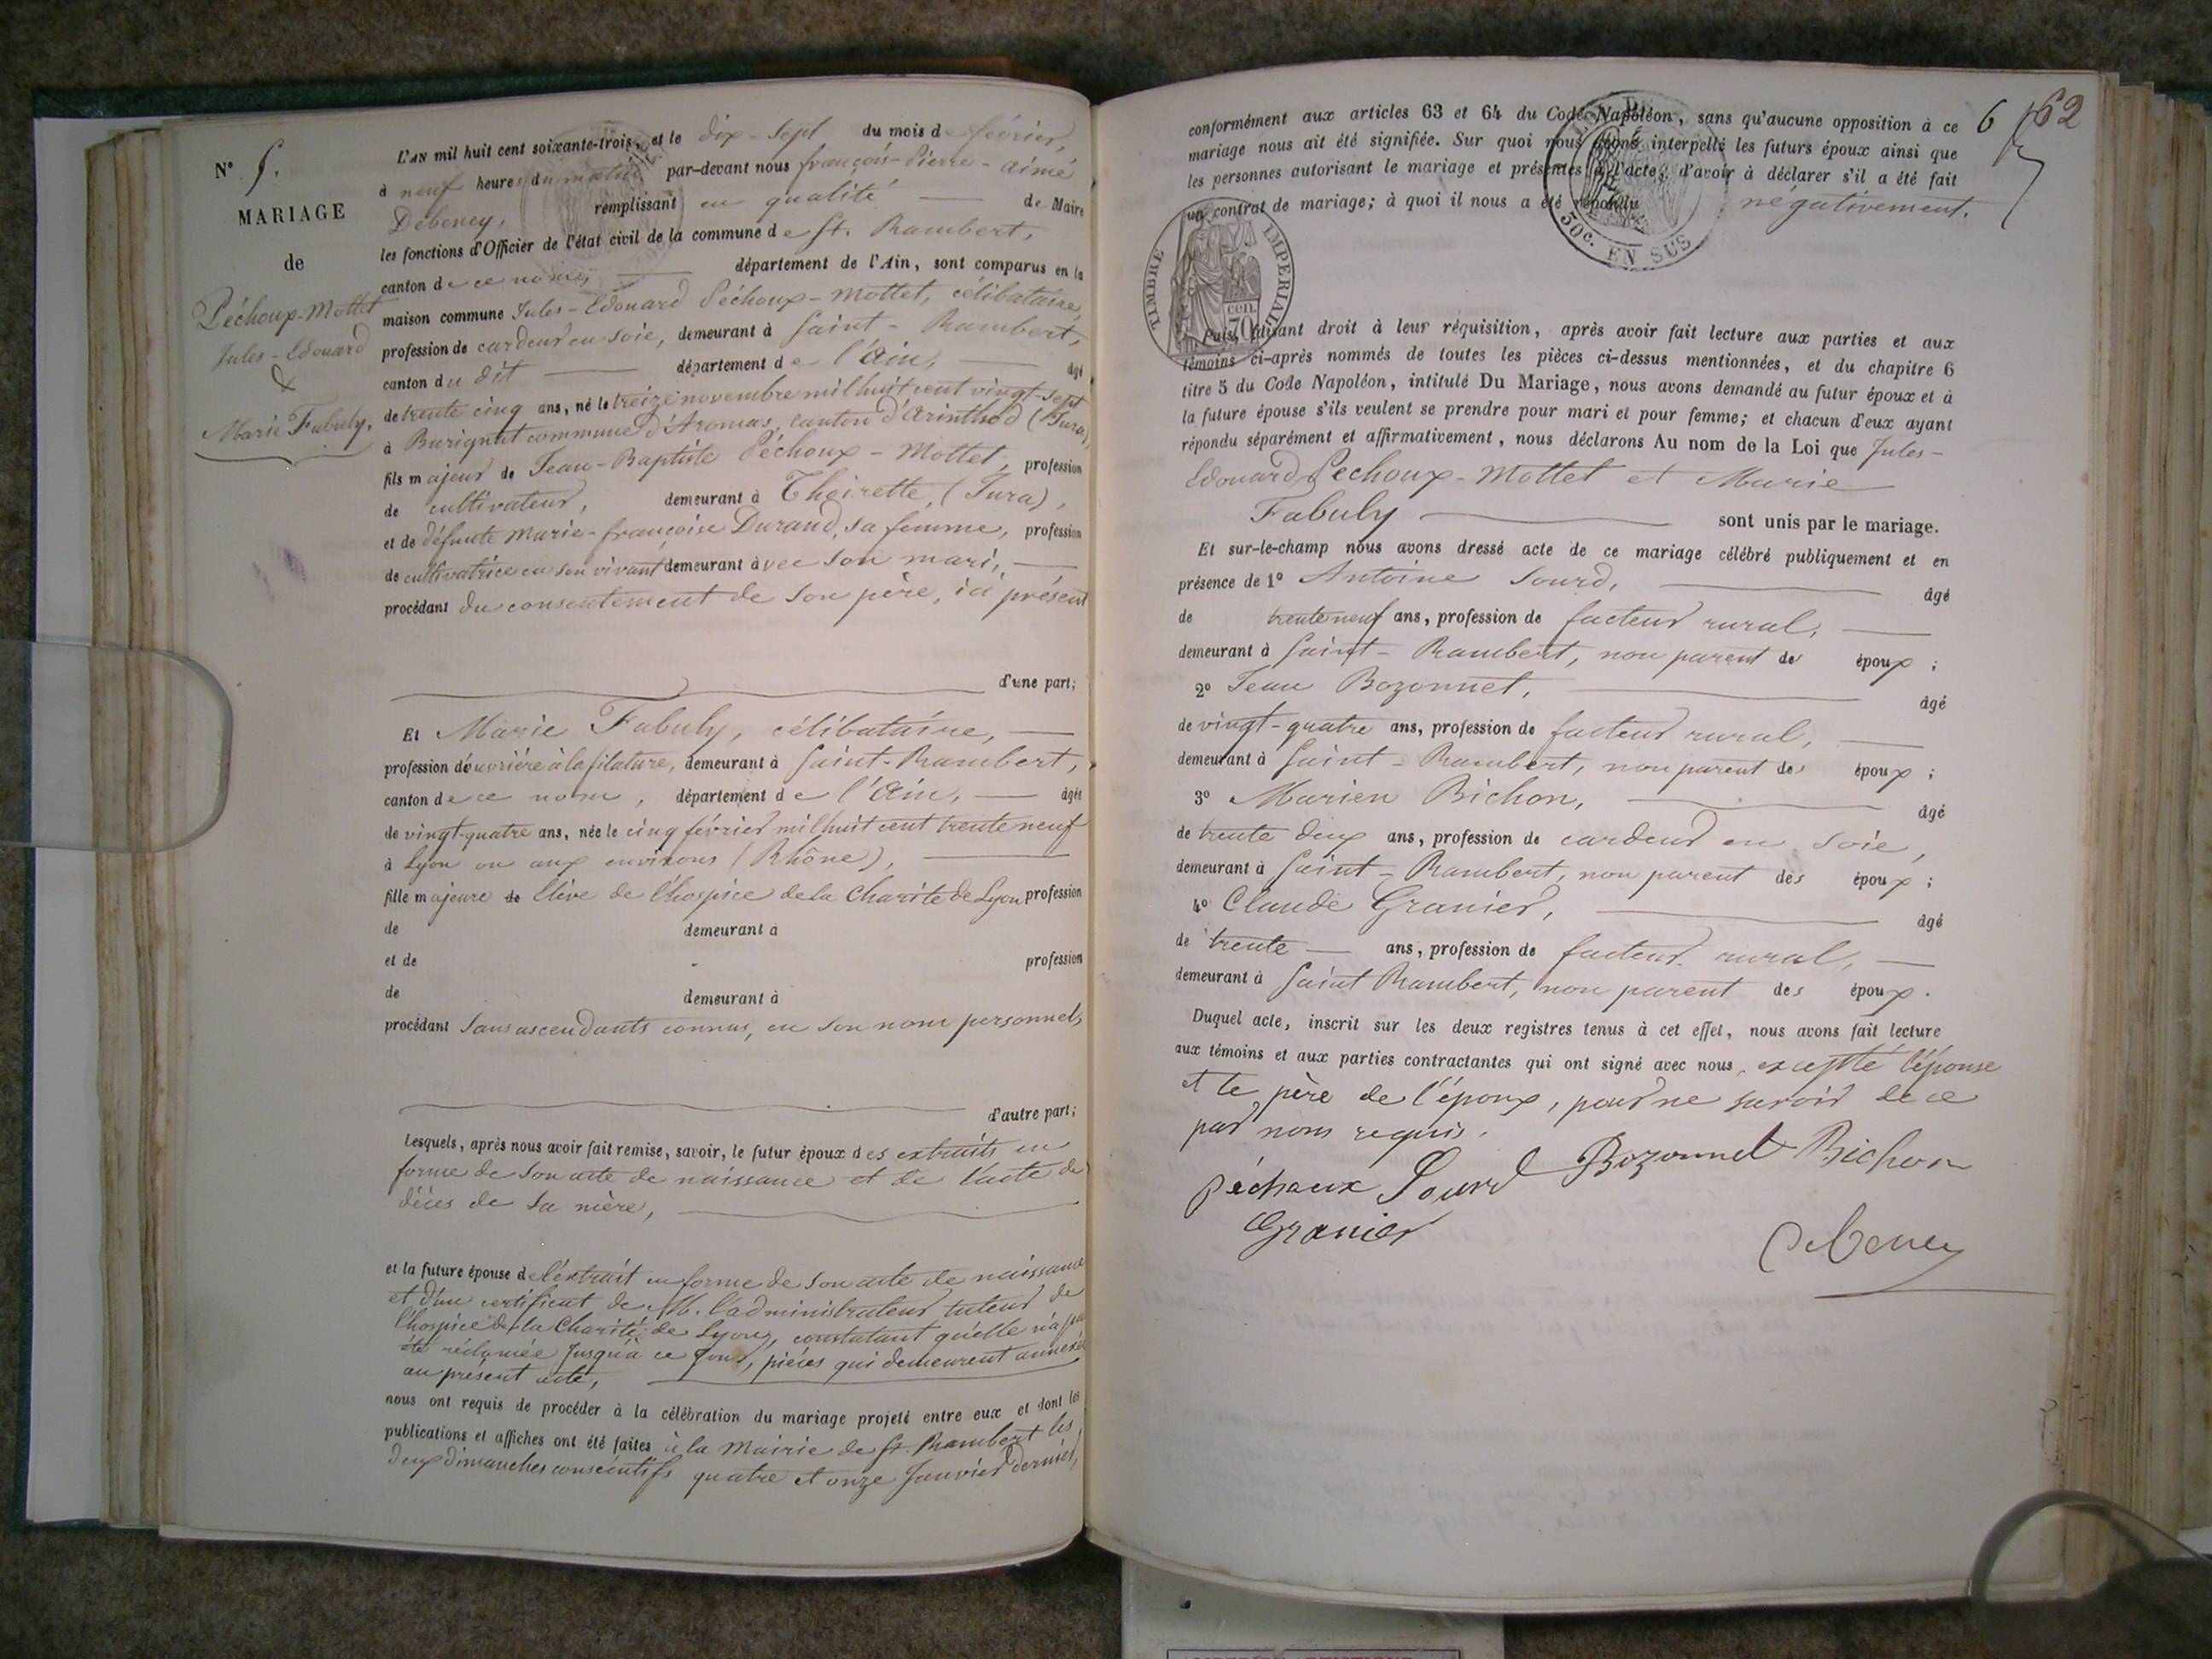 N° 5.
MARIAGE
de
Péchoux-Mottet
Jules-Edouard
&
Marie Fabuly.
L'AN mil huit cent soixante-trois, et le dix-sept du mois de février,
à neuf heures du matin par-devant nous françois-Pierre-aimé
Debeney, remplissant en qualité de Maire
les fonctions d'Officier de l'état civil de la commune de St. Rambert,
canton de ce nom, département de l'Ain, sont comparus en la
maison commune Jules-Edouard Péchoux-Mottet, célibataire,
profession de cardeur en soie, demeurant à Saint-Rambert,
canton du dit département de l'Ain, âgé
de trente cinq ans, né le treize novembre mil huit cent vingt-sept
à Burignat commune d'Aromas, canton d'Arinthod (Jura),
fils majeur de Jean-Baptiste Péchoux-Mottet, profession
de cultivateur, demeurant à Thoirette, (Jura),
et de défunte Marie-françoise Durand, sa femme, profession
de cultivatrice en son vivant demeurant avec son mari,
procédant du consentement de son père, ici présent
d'une part;
Et Marie Fabuly, célibataire,
profession d'ouvrière à la filature, demeurant à Saint-Rambert,
canton de ce nom, département de l'Ain, âgée
de vingt-quatre ans, née le cinq février mil huit cent trente neuf
à Lyon ou aux environs (Rhône),
fille majeure de Elève de l'hospice de la Charité de Lyon profession
de demeurant à
et de profession
de demeurant à
procédant sans ascendants connus, en son nom personnel,
d'autre part;
Lesquels, après nous avoir fait remise, savoir, le futur époux des extraits en
forme de son acte de naissance et de l'acte de
décès de sa mère,
et la future épouse de l'extrait en forme de son acte de naissance
et d'un certificat de M. l'administrateur tuteur de
l'hospice de la Charité de Lyon, constatant qu'elle n'a pas
été réclamée jusqu'à ce jour, pièces qui demeurent annexées
au présent acte,
nous ont requis de procéder à la célébration du mariage projeté entre eux et dont les
publications et affiches ont été faites à la Mairie de St. Rambert les
deux dimanches consécutifs quatre et onze Janvier dernier,
6 162
conformément aux articles 63 et 64 du Code Napoléon, sans qu'aucune opposition à ce
mariage nous ait été signifiée. Sur quoi nous avons interpellé les futurs époux ainsi que
les personnes autorisant le mariage et présentes à l'acte, d'avoir à déclarer s'il a été fait
un contrat de mariage; à quoi il nous a été répondu négativement.
50c. EN SUS
TIMBRE IMPERIAL
70 cen.
Puis, faisant droit à leur réquisition, après avoir fait lecture aux parties et aux
témoins ci-après nommés de toutes les pièces ci-dessus mentionnées, et du chapitre 6
titre 5 du Code Napoléon, intitulé Du Mariage, nous avons demandé au futur époux et à
la future épouse s'ils veulent se prendre pour mari et pour femme; et chacun d'eux ayant
répondu séparément et affirmativement, nous déclarons Au nom de la Loi que Jules-
Edouard Pechoux-Mottet et Marie
Fabuly sont unis par le mariage.
Et sur-le-champ nous avons dressé acte de ce mariage célébré publiquement et en
présence de 1° Antoine Sourd, âgé
de trente neuf ans, profession de facteur rural,
demeurant à Saint-Rambert, non parent des époux;
2° Jean Bozonnet, âgé
de vingt-quatre ans, profession de facteur rural,
demeurant à Saint-Rambert, non parent des époux;
3° Marien Bichon, âgé
de trente deux ans, profession de cardeur en soie,
demeurant à Saint-Rambert, non parent des époux;
4° Claude Granier, âgé
de trente ans, profession de facteur rural,
demeurant à Saint Rambert, non parent des époux.
Duquel acte, inscrit sur les deux registres tenus à cet effet, nous avons fait lecture
aux témoins et aux parties contractantes qui ont signé avec nous, excepté l'épouse
et le père de l'époux, pour ne savoir de ce
par nous requis.
péchaux Sourd Bozonnet Bichon
Granier
Debeney